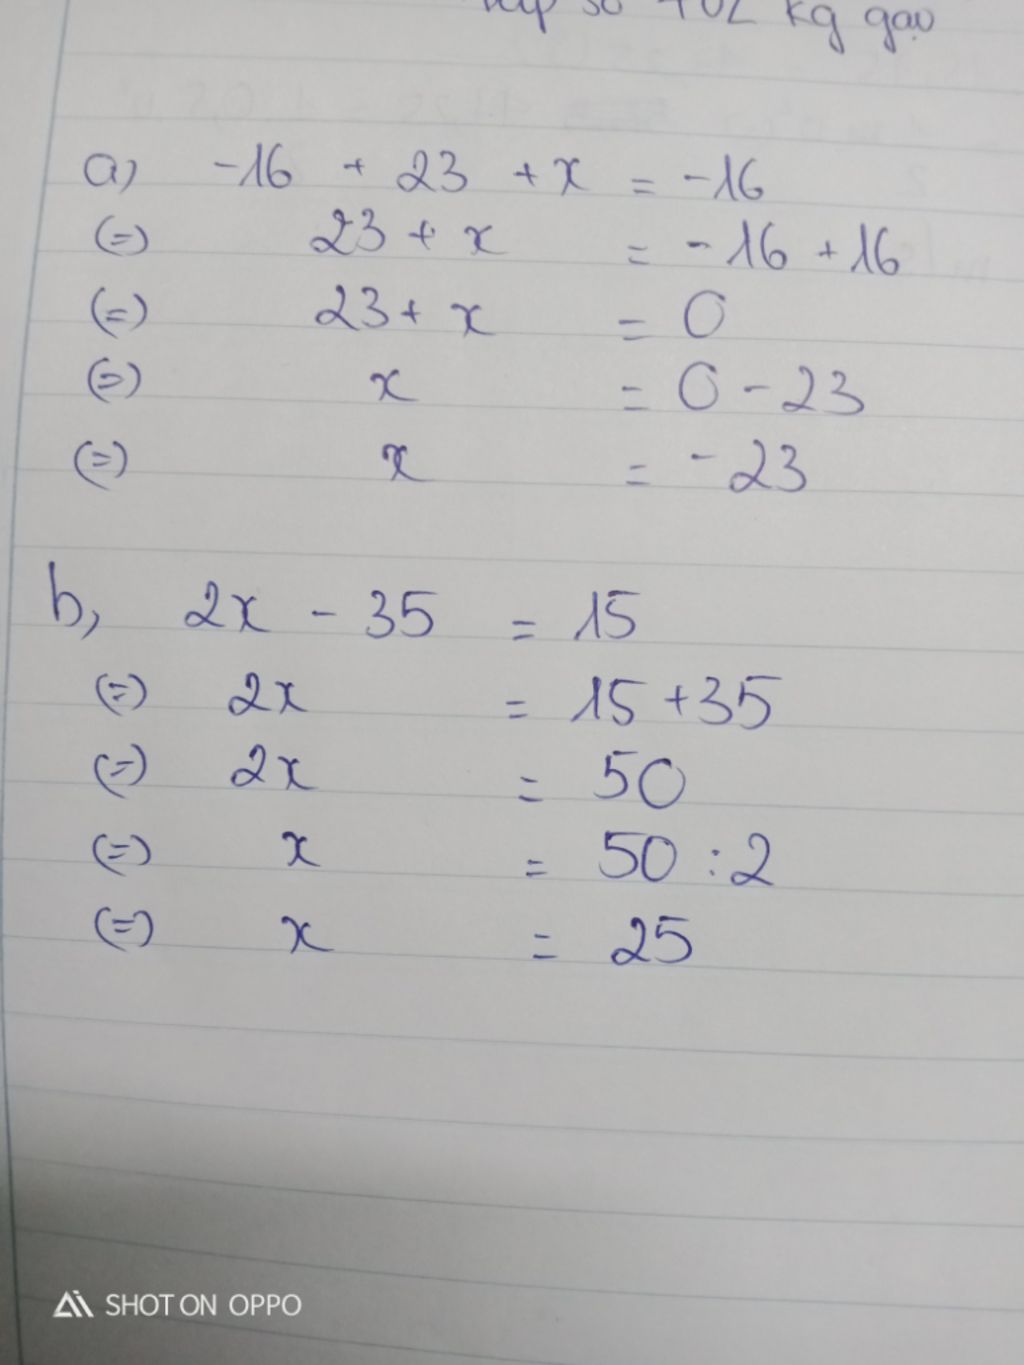 số 702 kg gạo
a, -16 + 23 + x = -16
(=) 23 + x = - 16 + 16
(=) 23 + x = 0
(=) x = 0 - 23
(=) x = - 23
b, 2x - 35 = 15
(=) 2x = 15 + 35
(=) 2x = 50
(=) x = 50 : 2
(=) x = 25
SHOT ON OPPO